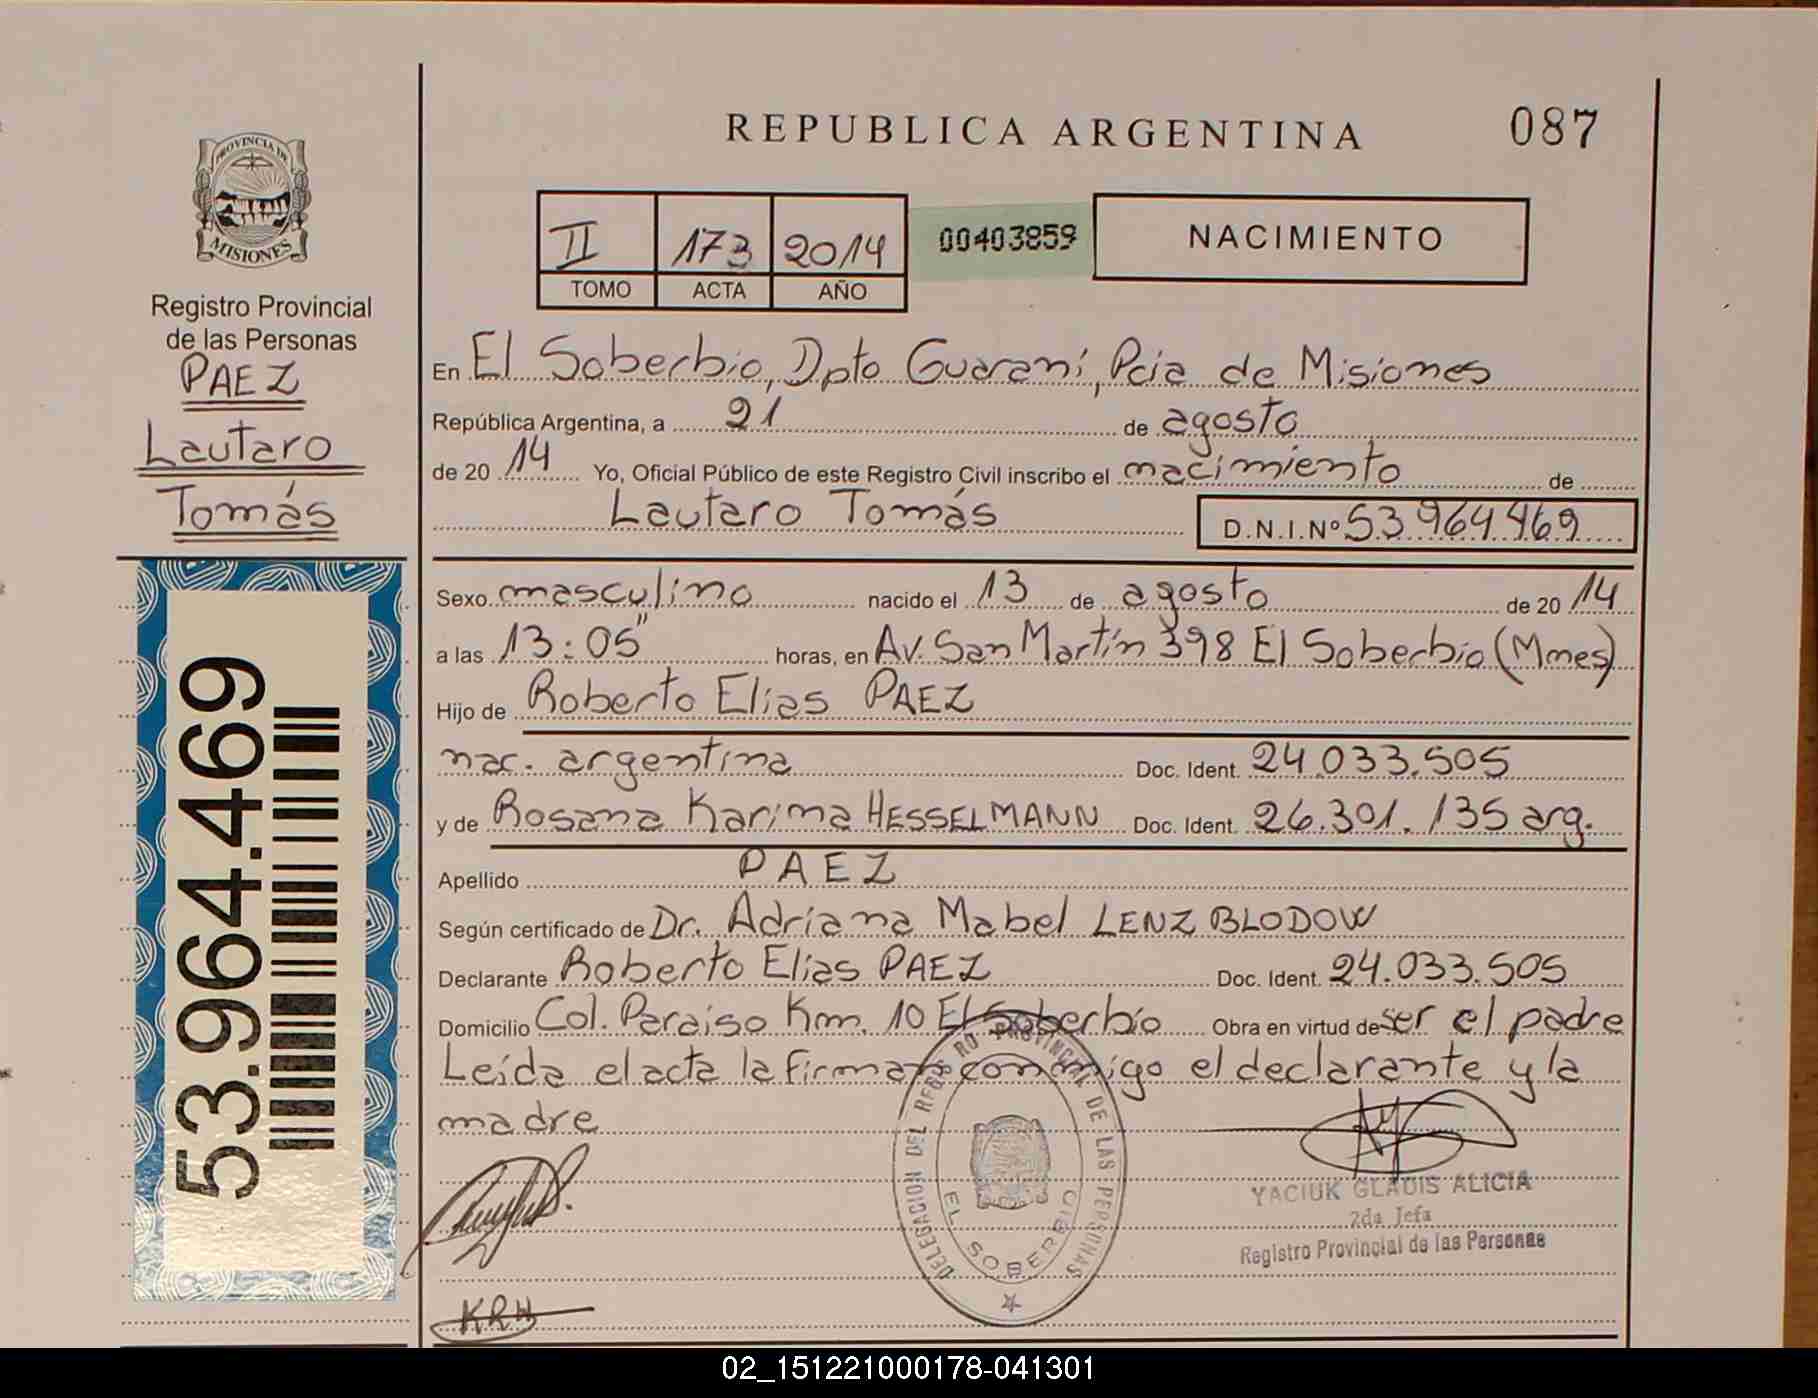 PROVINCIA DE
MISIONES
Registro Provincial
de las Personas
PAEZ
Lautaro
Tomás
53.964.469
REPUBLICA ARGENTINA
087
II 173 2014
TOMO ACTA AÑO
00403859
NACIMIENTO
En El Soberbio, Dpto Guaraní, Pcia de Misiones
República Argentina, a 21 de agosto
de 20 14 Yo, Oficial Público de este Registro Civil inscribo el nacimiento de
Lautaro Tomás D.N.I.Nº 53 964 469
Sexo masculino nacido el 13 de agosto de 20 14
a las 13:05" horas, en Av. San Martín 398 El Soberbio (Mnes)
Hijo de Roberto Elias PAEZ
nac. argentina Doc. Ident. 24.033.505
y de Rosana Karina HESSELMANN Doc. Ident. 26.301.135 arg.
Apellido PAEZ
Según certificado de Dr. Adriana Mabel LENZ BLODOW
Declarante Roberto Elias PAEZ Doc. Ident. 24.033.505
Domicilio Col. Paraiso Km. 10 El Soberbio Obra en virtud de ser el padre
Leída el acta la firman conmigo el declarante y la
madre
DELEGACION DEL REGISTRO PROVINCIAL DE LAS PERSONAS
EL SOBERBIO
YACIUK GLADIS ALICIA
2da Jefa
Registro Provincial de las Personas
KRH
02_151221000178-041301